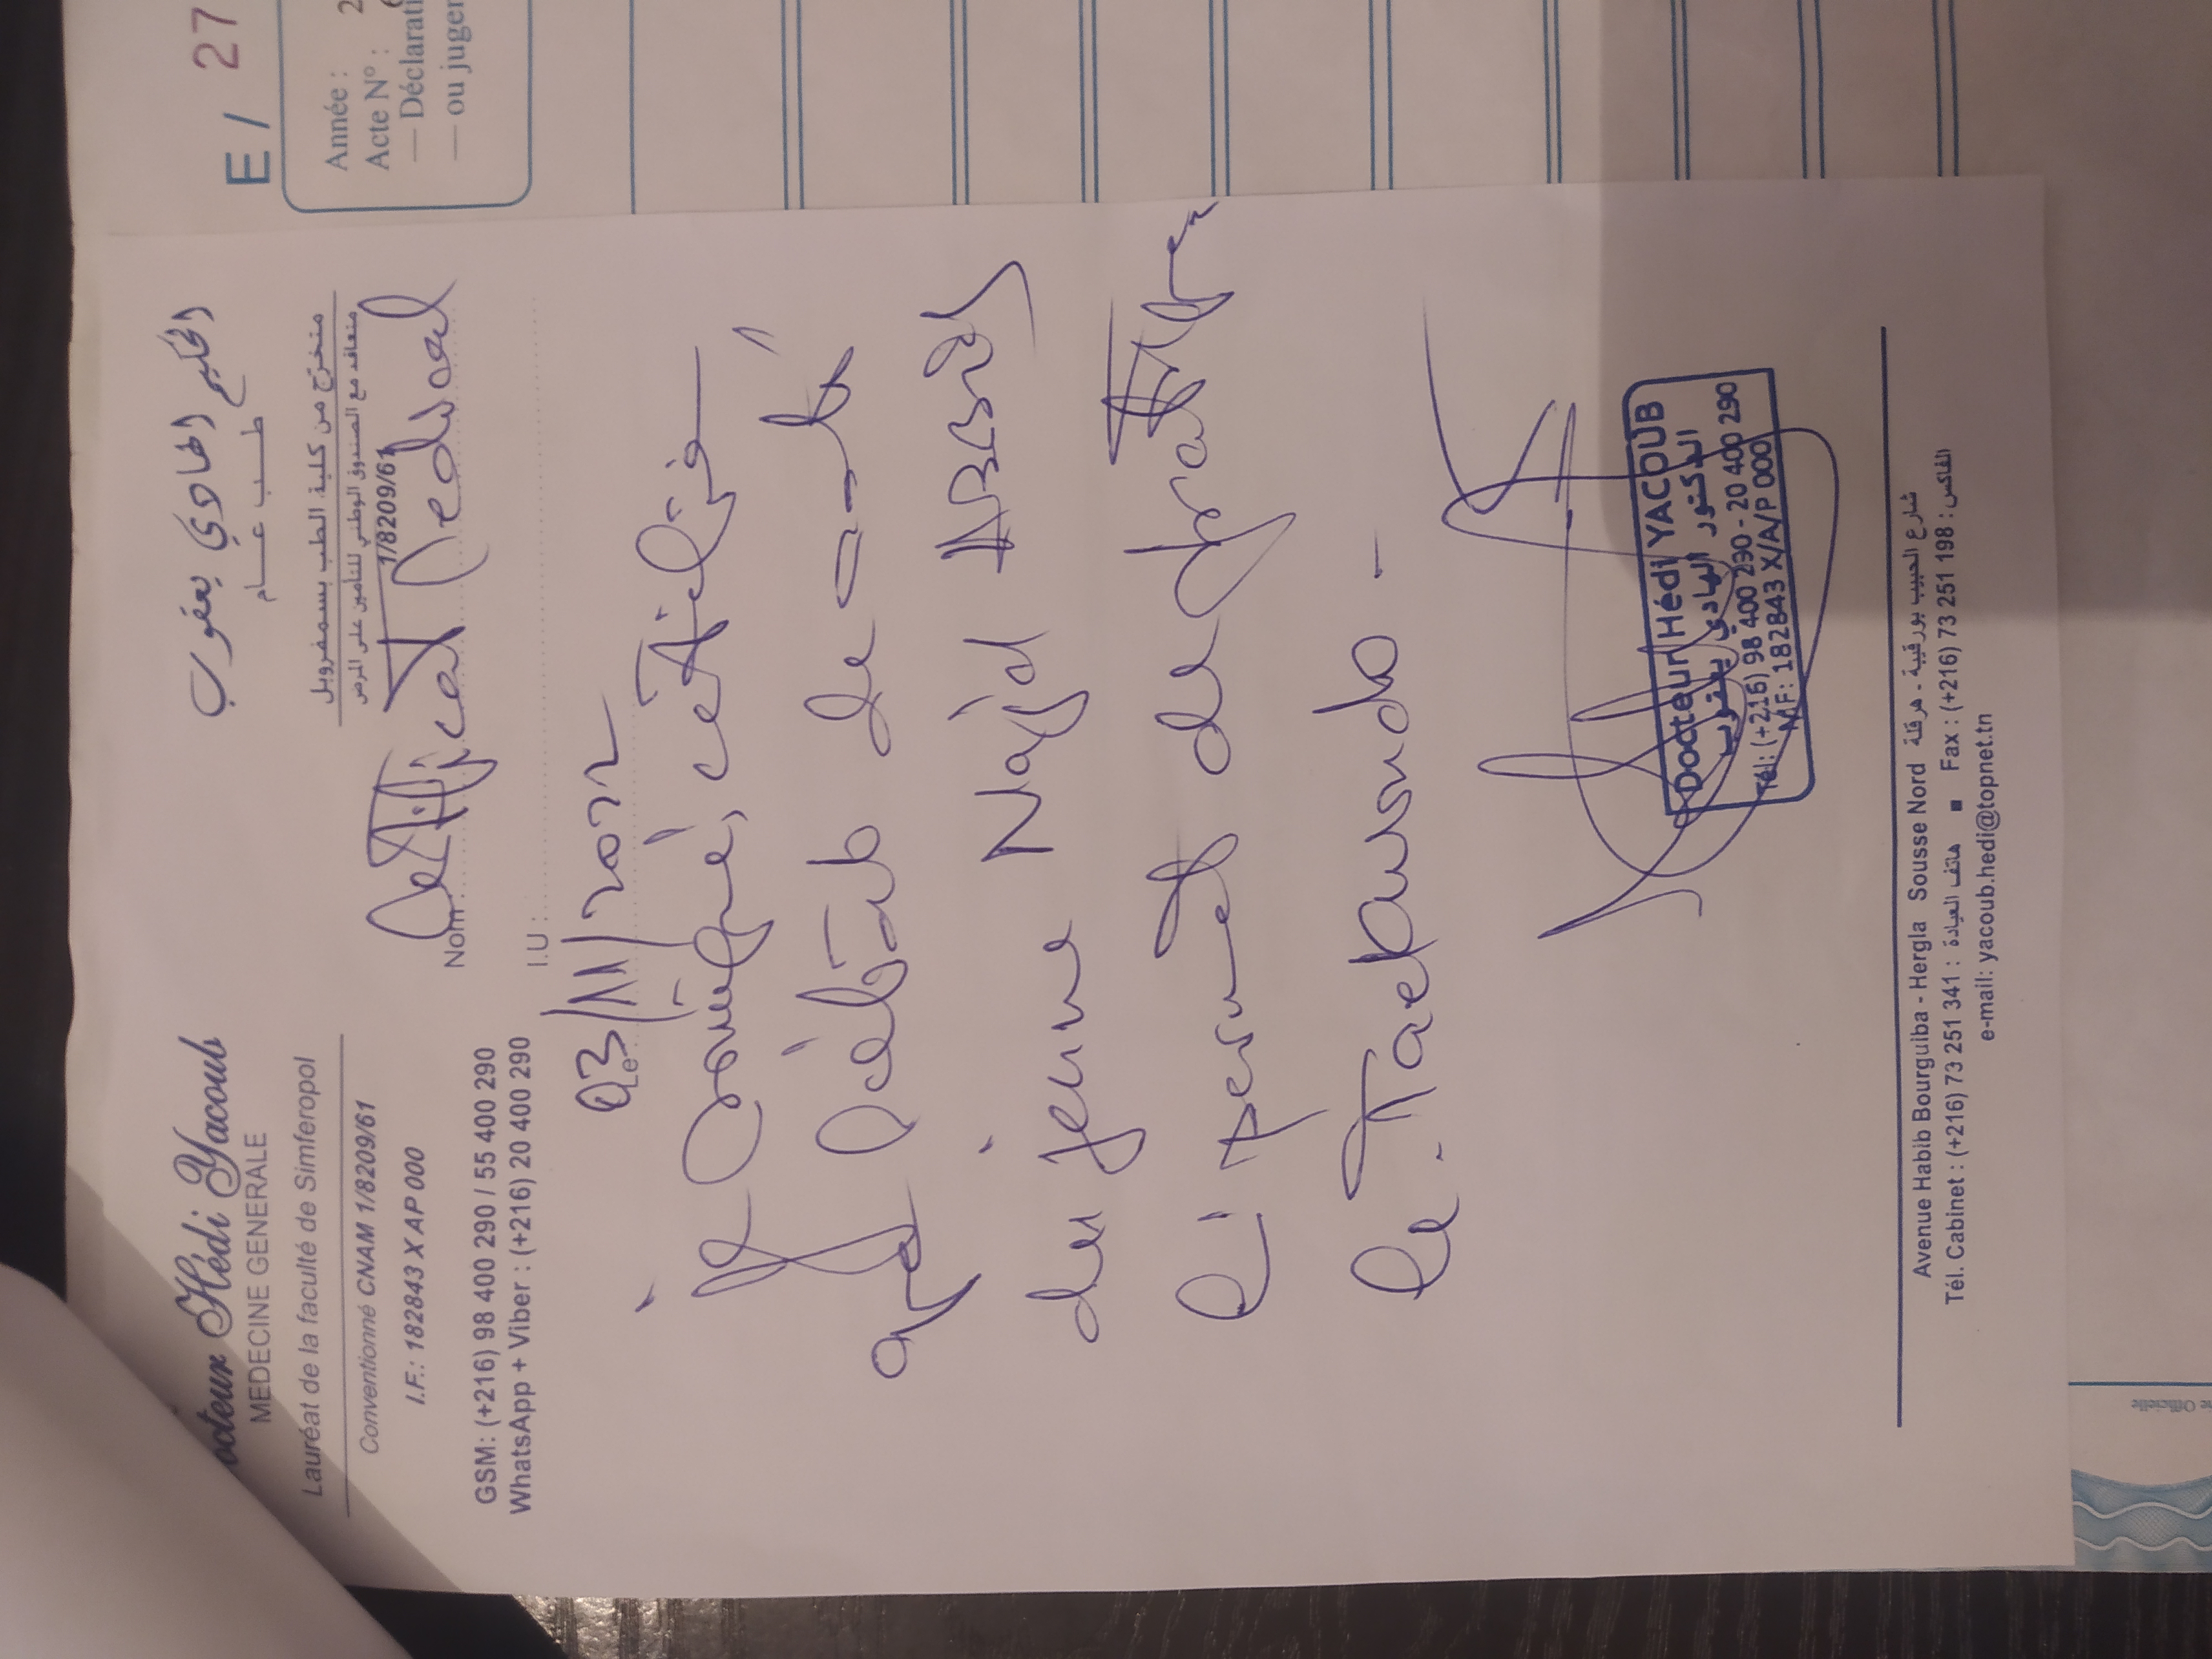 Docteur Hédi Yacoub
MEDECINE GENERALE
Lauréat de la faculté de Simferopol
Conventionné CNAM 1/8209/61
I.F.: 182843 X AP 000
GSM: (+216) 98 400 290 / 55 400 290
WhatsApp + Viber : (+216) 20 400 290
الحكيم الهادي يعقوب
طـــب عـــام
متخرّج من كلية الطب بسمفروبل
متعاقد مع الصندوق الوطني للتأمين على المرض
1/8209/61
Nom:
Certificat Médical
I.U :
Le
03/11/2022
Je soussigné, certifie
que l'état de santé
du jeune Najd
lui permet de pratiquer
le Taekwondo -
Docteur Hédi YACOUB
الدكتور الهادي يعقوب
Tél: (+216) 98 400 290 - 20 400 290
M.F: 182843 X/A/P 000
Avenue Habib Bourguiba - Hergla Sousse Nord شارع الحبيب بورقيبة - هرقلة
Tél. Cabinet : (+216) 73 251 341 : هاتف العيادة ■ Fax : (+216) 73 251 198 : الفاكس
e-mail: yacoub.hedi@topnet.tn
E / 27
Année : 2
Acte N° :
— Déclarati
— ou juger